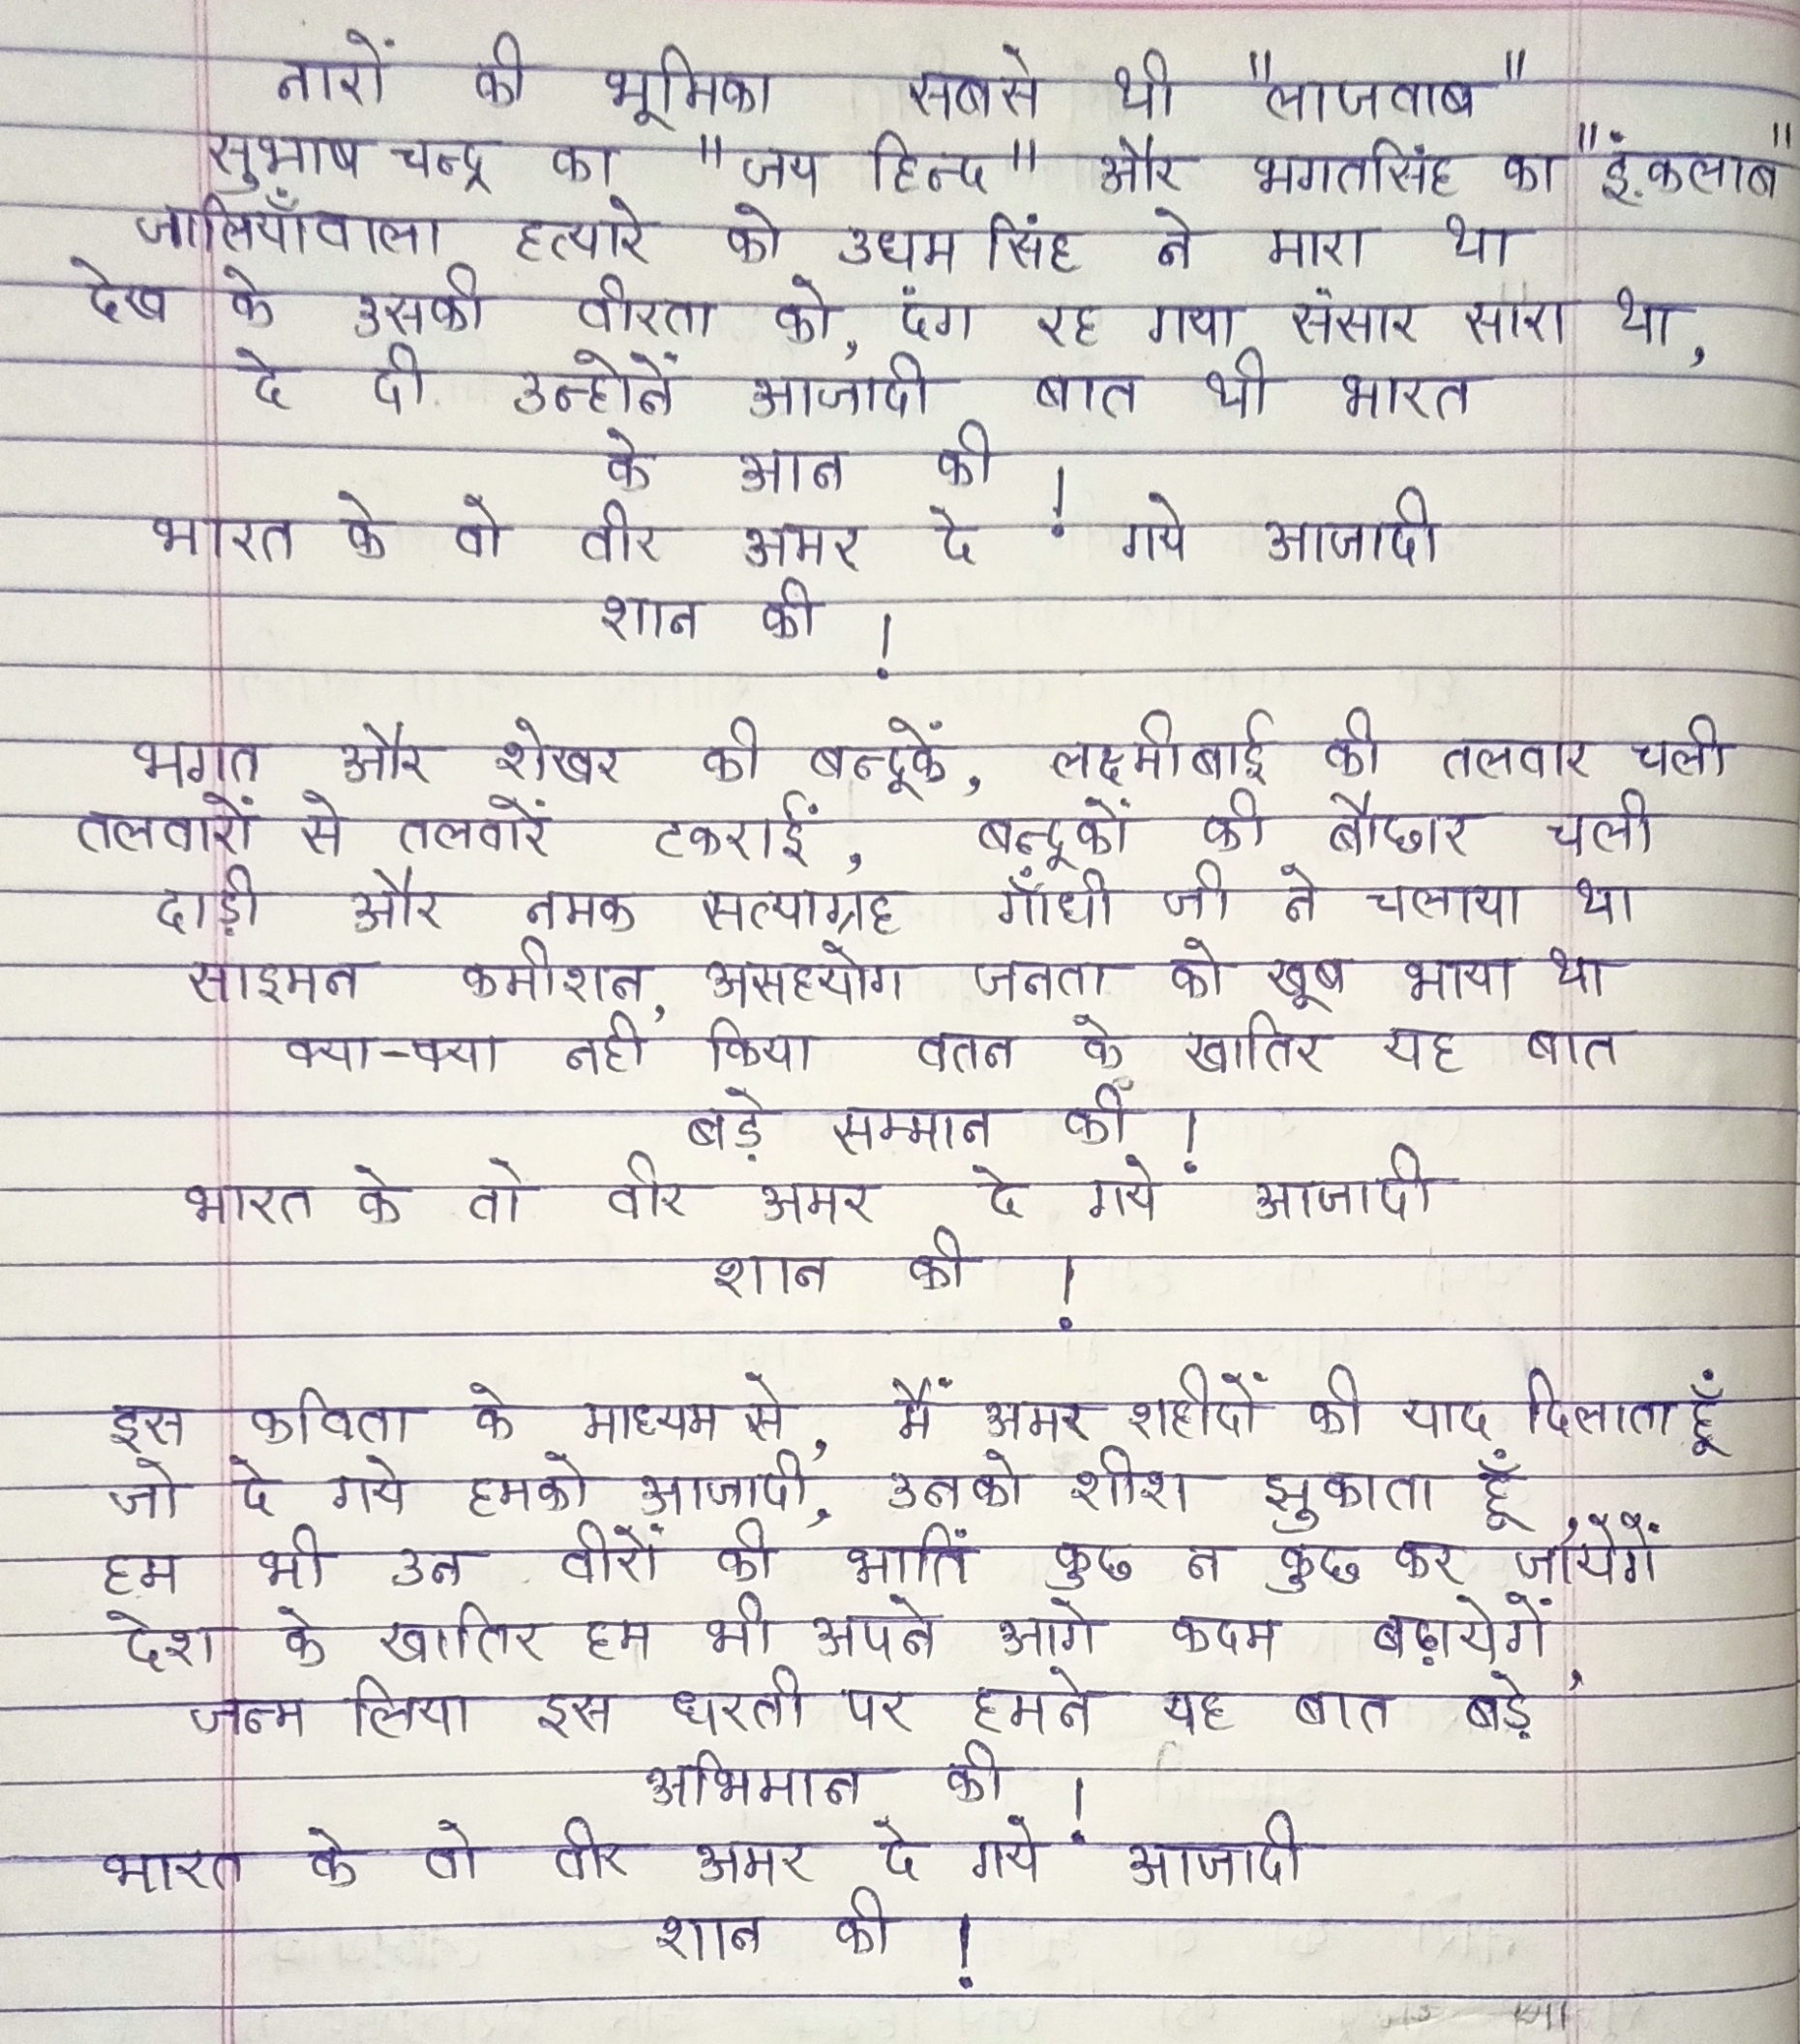 नारों की भूमिका सबसे थी "लाजवाब"
सुभाष चन्द्र का "जय हिन्द" और भगतसिंह का "इंकलाब"
जालियाँवाला हत्यारे को उधम सिंह ने मारा था
देख के उसकी वीरता को, दंग रह गया संसार सारा था,
दे दी उन्होनें आजादी बात थी भारत
के आन की !
भारत के वो वीर अमर दे गये आजादी
शान की !
भगत और शेखर की बन्दूकें, लक्ष्मीबाई की तलवार चली
तलवारों से तलवारें टकराईं, बन्दूकों की बौछार चली
दाड़ी और नमक सत्याग्रह गाँधी जी ने चलाया था
साइमन कमीशन, असहयोग जनता को खूब भाया था
क्या-क्या नही किया वतन के खातिर यह बात
बड़े सम्मान की !
भारत के वो वीर अमर दे गये आजादी
शान की !
इस कविता के माध्यम से, मैं अमर शहीदों की याद दिलाता हूँ
जो दे गये हमको आजादी, उनको शीश झुकाता हूँ,
हम भी उन वीरों की भातिं कुछ न कुछ कर जायेगें
देश के खातिर हम भी अपने आगे कदम बढ़ायेगें,
जन्म लिया इस धरती पर हमने यह बात बड़े
अभिमान की !
भारत के वो वीर अमर दे गये आजादी
शान की !